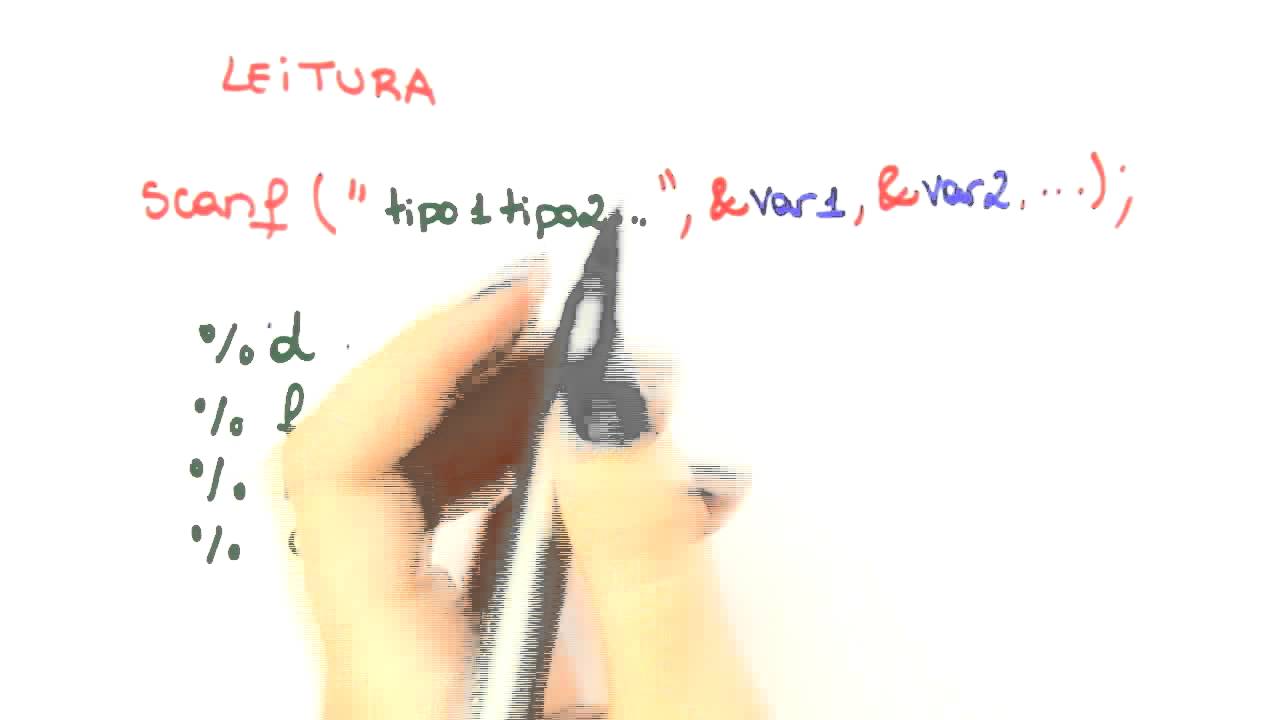 LEiTURA
scanf (" tipo1 tipo2... ", &var1, &var2, ...);
%d
%f
%
%